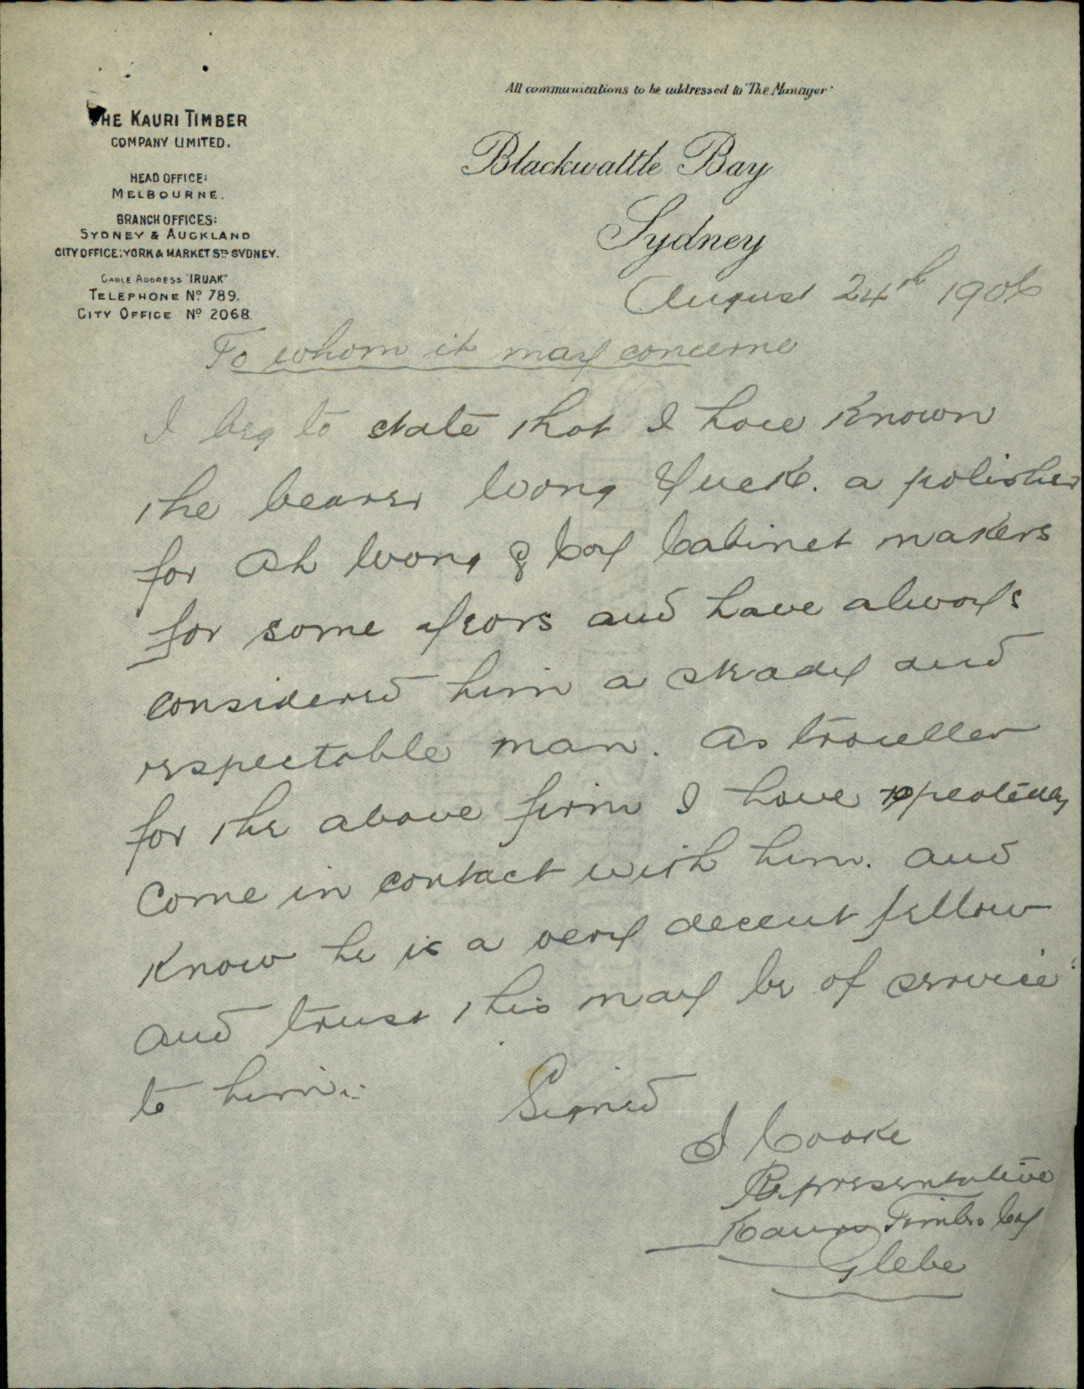 All communications to be addressed to "The Manager"
THE KAURI TIMBER
COMPANY LIMITED.
HEAD OFFICE:
MELBOURNE.
BRANCH OFFICES:
SYDNEY & AUCKLAND
CITY OFFICE: YORK & MARKET STS SYDNEY.
CABLE ADDRESS "IRUAK"
TELEPHONE No 789.
CITY OFFICE No 2068
Blackwattle Bay
Sydney
August 24th 1906
To whom it may concern
I beg to state that I have known
the bearer Wong Yuek. a polisher
for Ah Wong & Coy Cabinet makers
for some years and have always
considered him a steady and
respectable man. As traveller
for the above firm I have repeatedly
come in contact with him. and
know he is a very decent fellow
and trust this may be of service
to him:
Signed
J Cooke
Representative
Kauri Timber Coy
Glebe